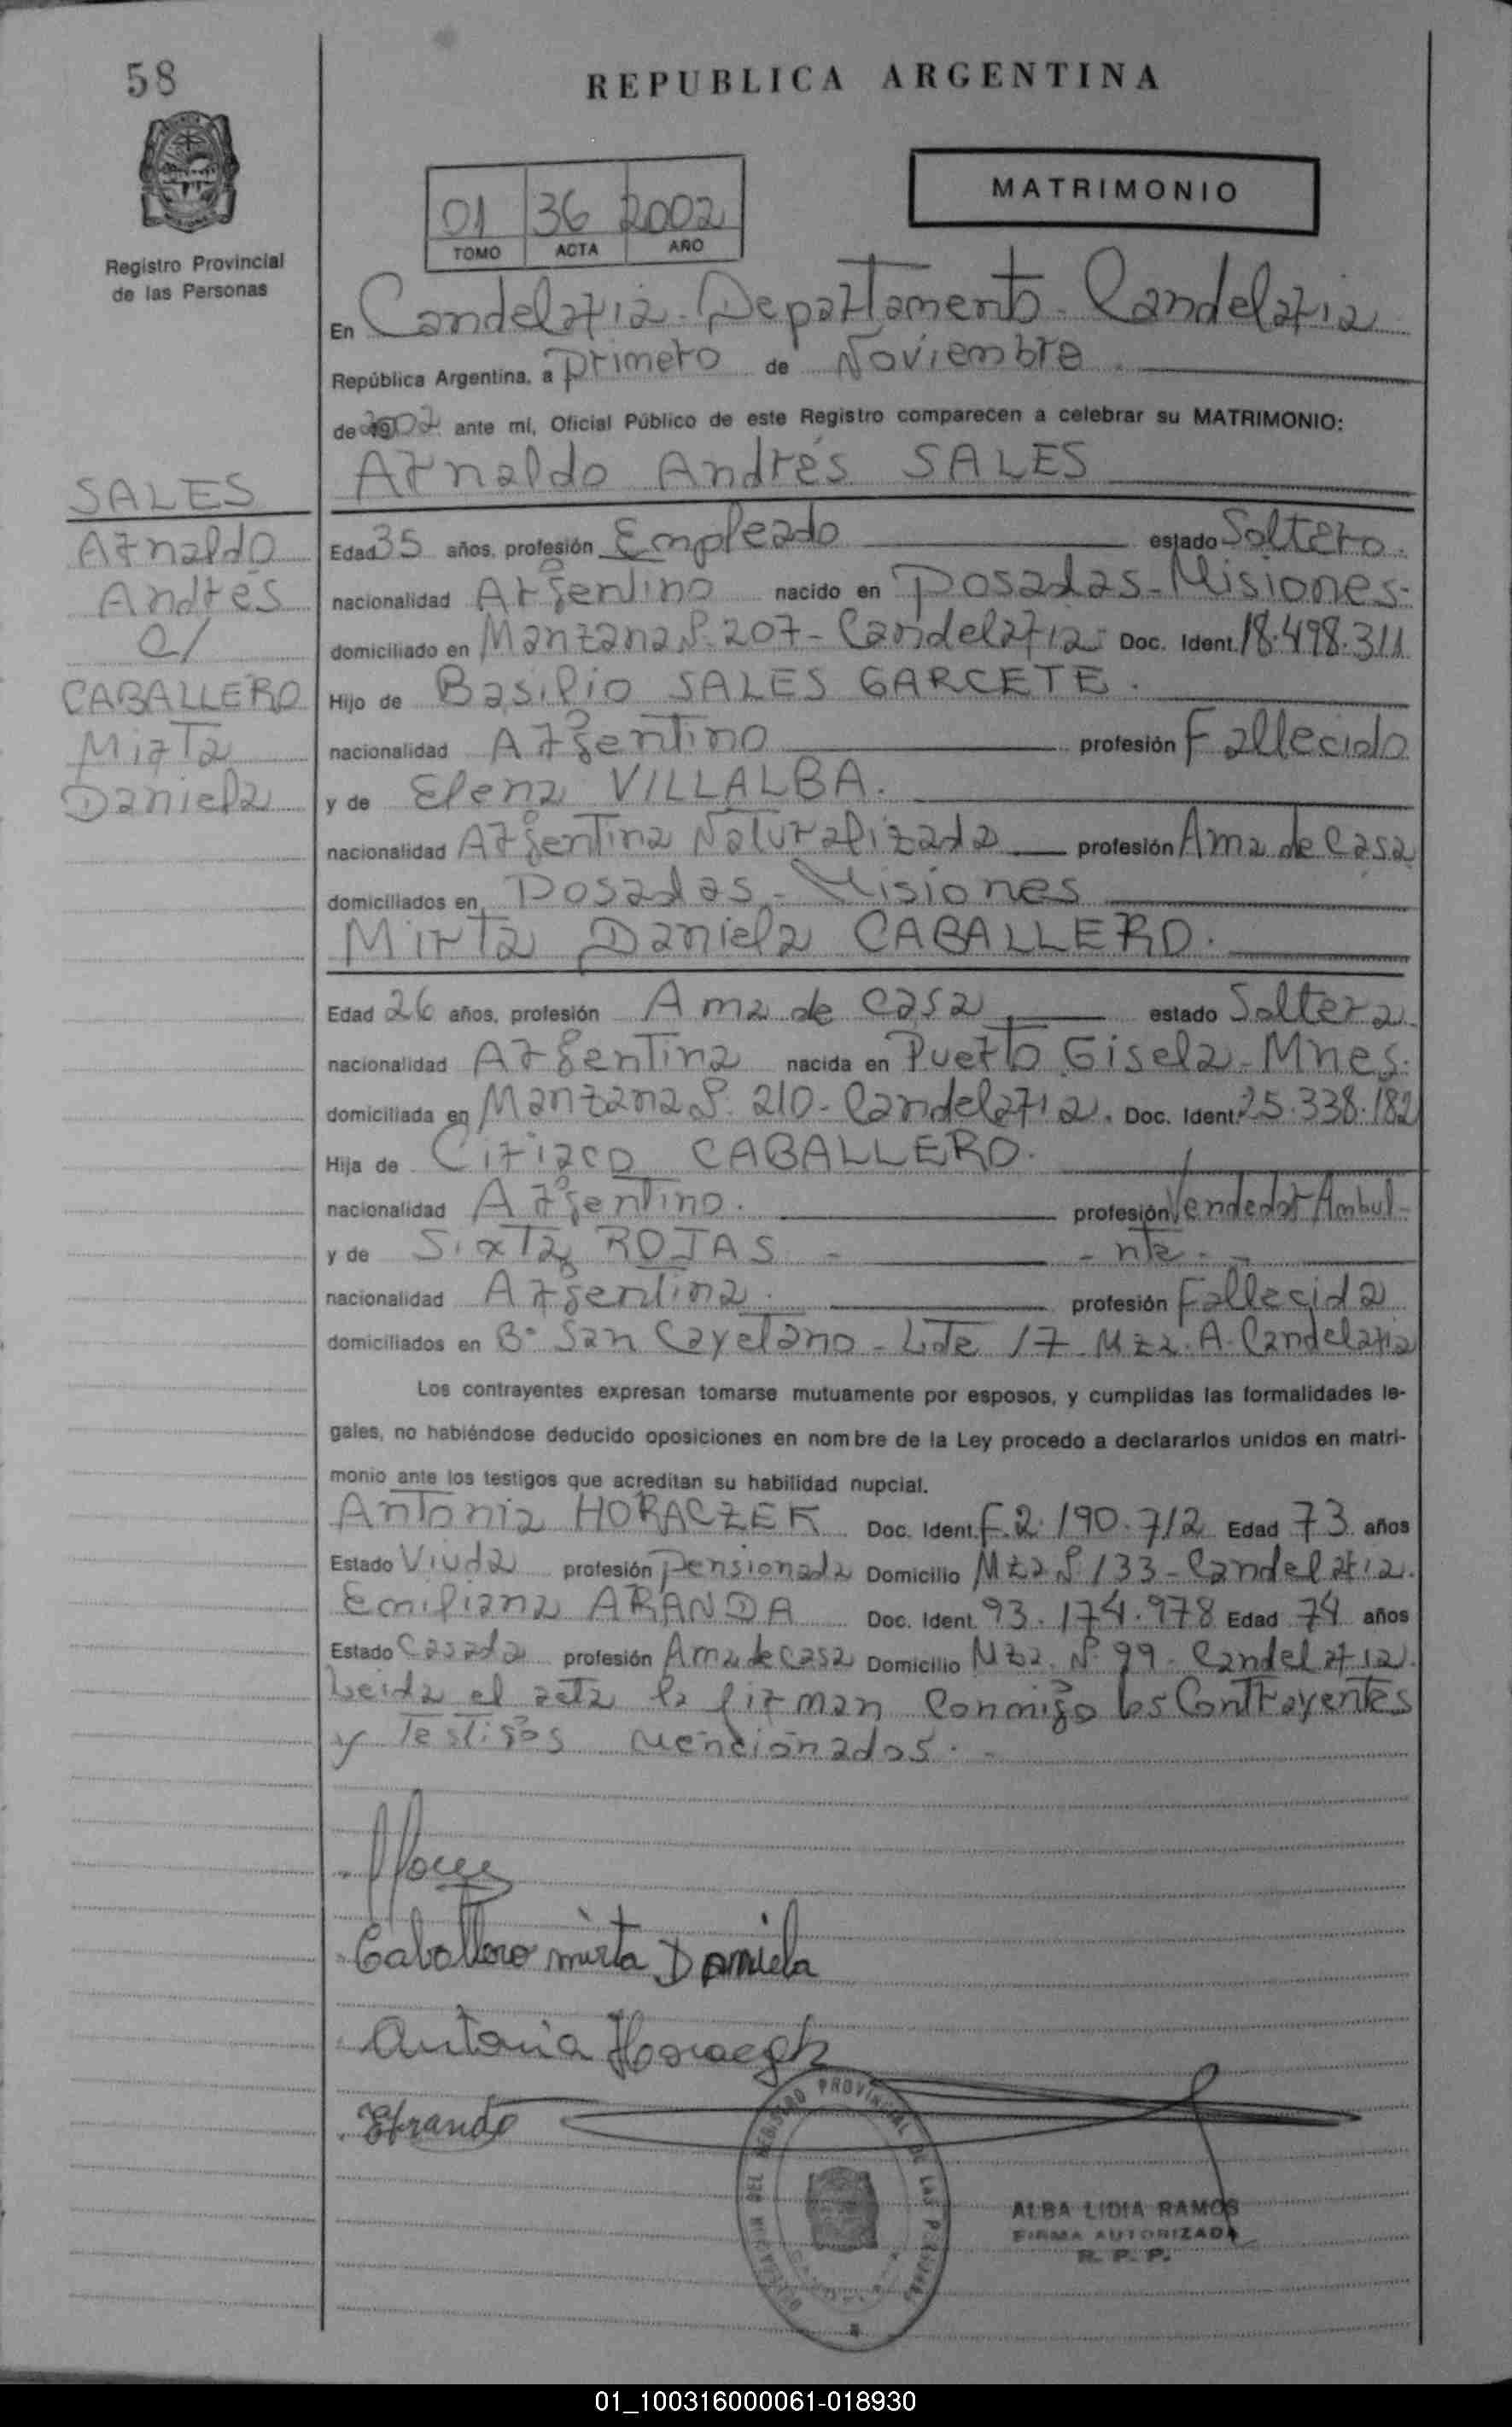 58
REPUBLICA ARGENTINA
MATRIMONIO
01 36 2002
TOMO ACTA AÑO
Registro Provincial
de las Personas
En Candelaria - Departamento - Candelaria
República Argentina, a primero de Noviembre
de 2002 ante mí, Oficial Público de este Registro comparecen a celebrar su MATRIMONIO:
Arnaldo Andrés SALES
SALES
Arnaldo
Andrés
C/
CABALLERO
Mirta
Daniela
Edad 35 años, profesión Empleado estado Soltero.
nacionalidad Argentino nacido en Posadas - Misiones-
domiciliado en Manzana S. 207 - Candelaria Doc. Ident. 18.498.311
Hijo de Basilio SALES GARCETE.
nacionalidad Argentino profesión Fallecido
y de Elena VILLALBA.
nacionalidad Argentina Naturalizada profesión Ama de Casa
domiciliados en Posadas - Misiones
Mirta Daniela CABALLERO.
Edad 26 años, profesión Ama de Casa estado Soltera.
nacionalidad Argentina nacida en Puerto Gisela - Mnes.
domiciliada en Manzana S. 210 - Candelaria. Doc. Ident. 25.338.182
Hija de Ciriaco CABALLERO.
nacionalidad Argentino. profesión Vendedor Ambul-
y de Sixta ROJAS - - nte. -
nacionalidad Argentina. profesión Fallecida
domiciliados en B° San Cayetano - Lote 17 - Mza. A. Candelaria
Los contrayentes expresan tomarse mutuamente por esposos, y cumplidas las formalidades le-
gales, no habiéndose deducido oposiciones en nombre de la Ley procedo a declararlos unidos en matri-
monio ante los testigos que acreditan su habilidad nupcial.
Antonia HORACZEK Doc. Ident. F.2.190.712 Edad 73 años
Estado Viuda profesión Pensionada Domicilio Mza S. 133 - Candelaria.
Emiliana ARANDA Doc. Ident. 93.174.978 Edad 74 años
Estado Casada profesión Ama de Casa Domicilio Mza. N° 99 - Candelaria.
Leida el acta la firman conmigo los Contrayentes
y Testigos mencionados. -
Caballero mirta Daniela
Antonia
REGISTRO PROVINCIAL DE LAS PERSONAS
ALBA LIDIA RAMOS
FIRMA AUTORIZADA
R. P. P.
01_100316000061-018930